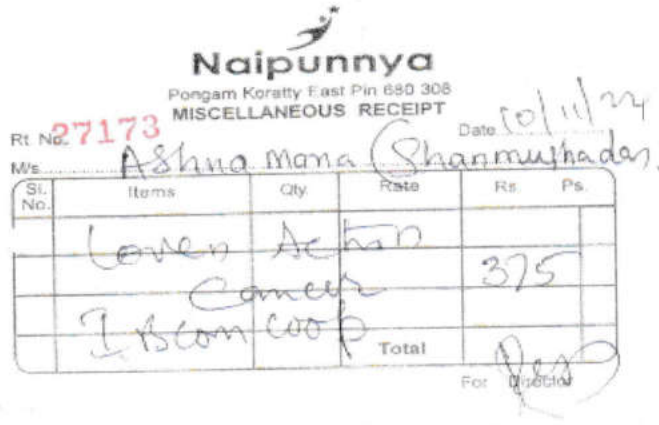 Naipunnya
Pongam Koratty East Pin 680 308
MISCELLANEOUS RECEIPT
Rt. No. 27173 Date 10/11/24
M/s. Ashna mana (Shanmughadas)
Sl. No. Items Qty. Rate Rs. Ps.
Action
Cancer 375
I BCom Coop
Total
For Director